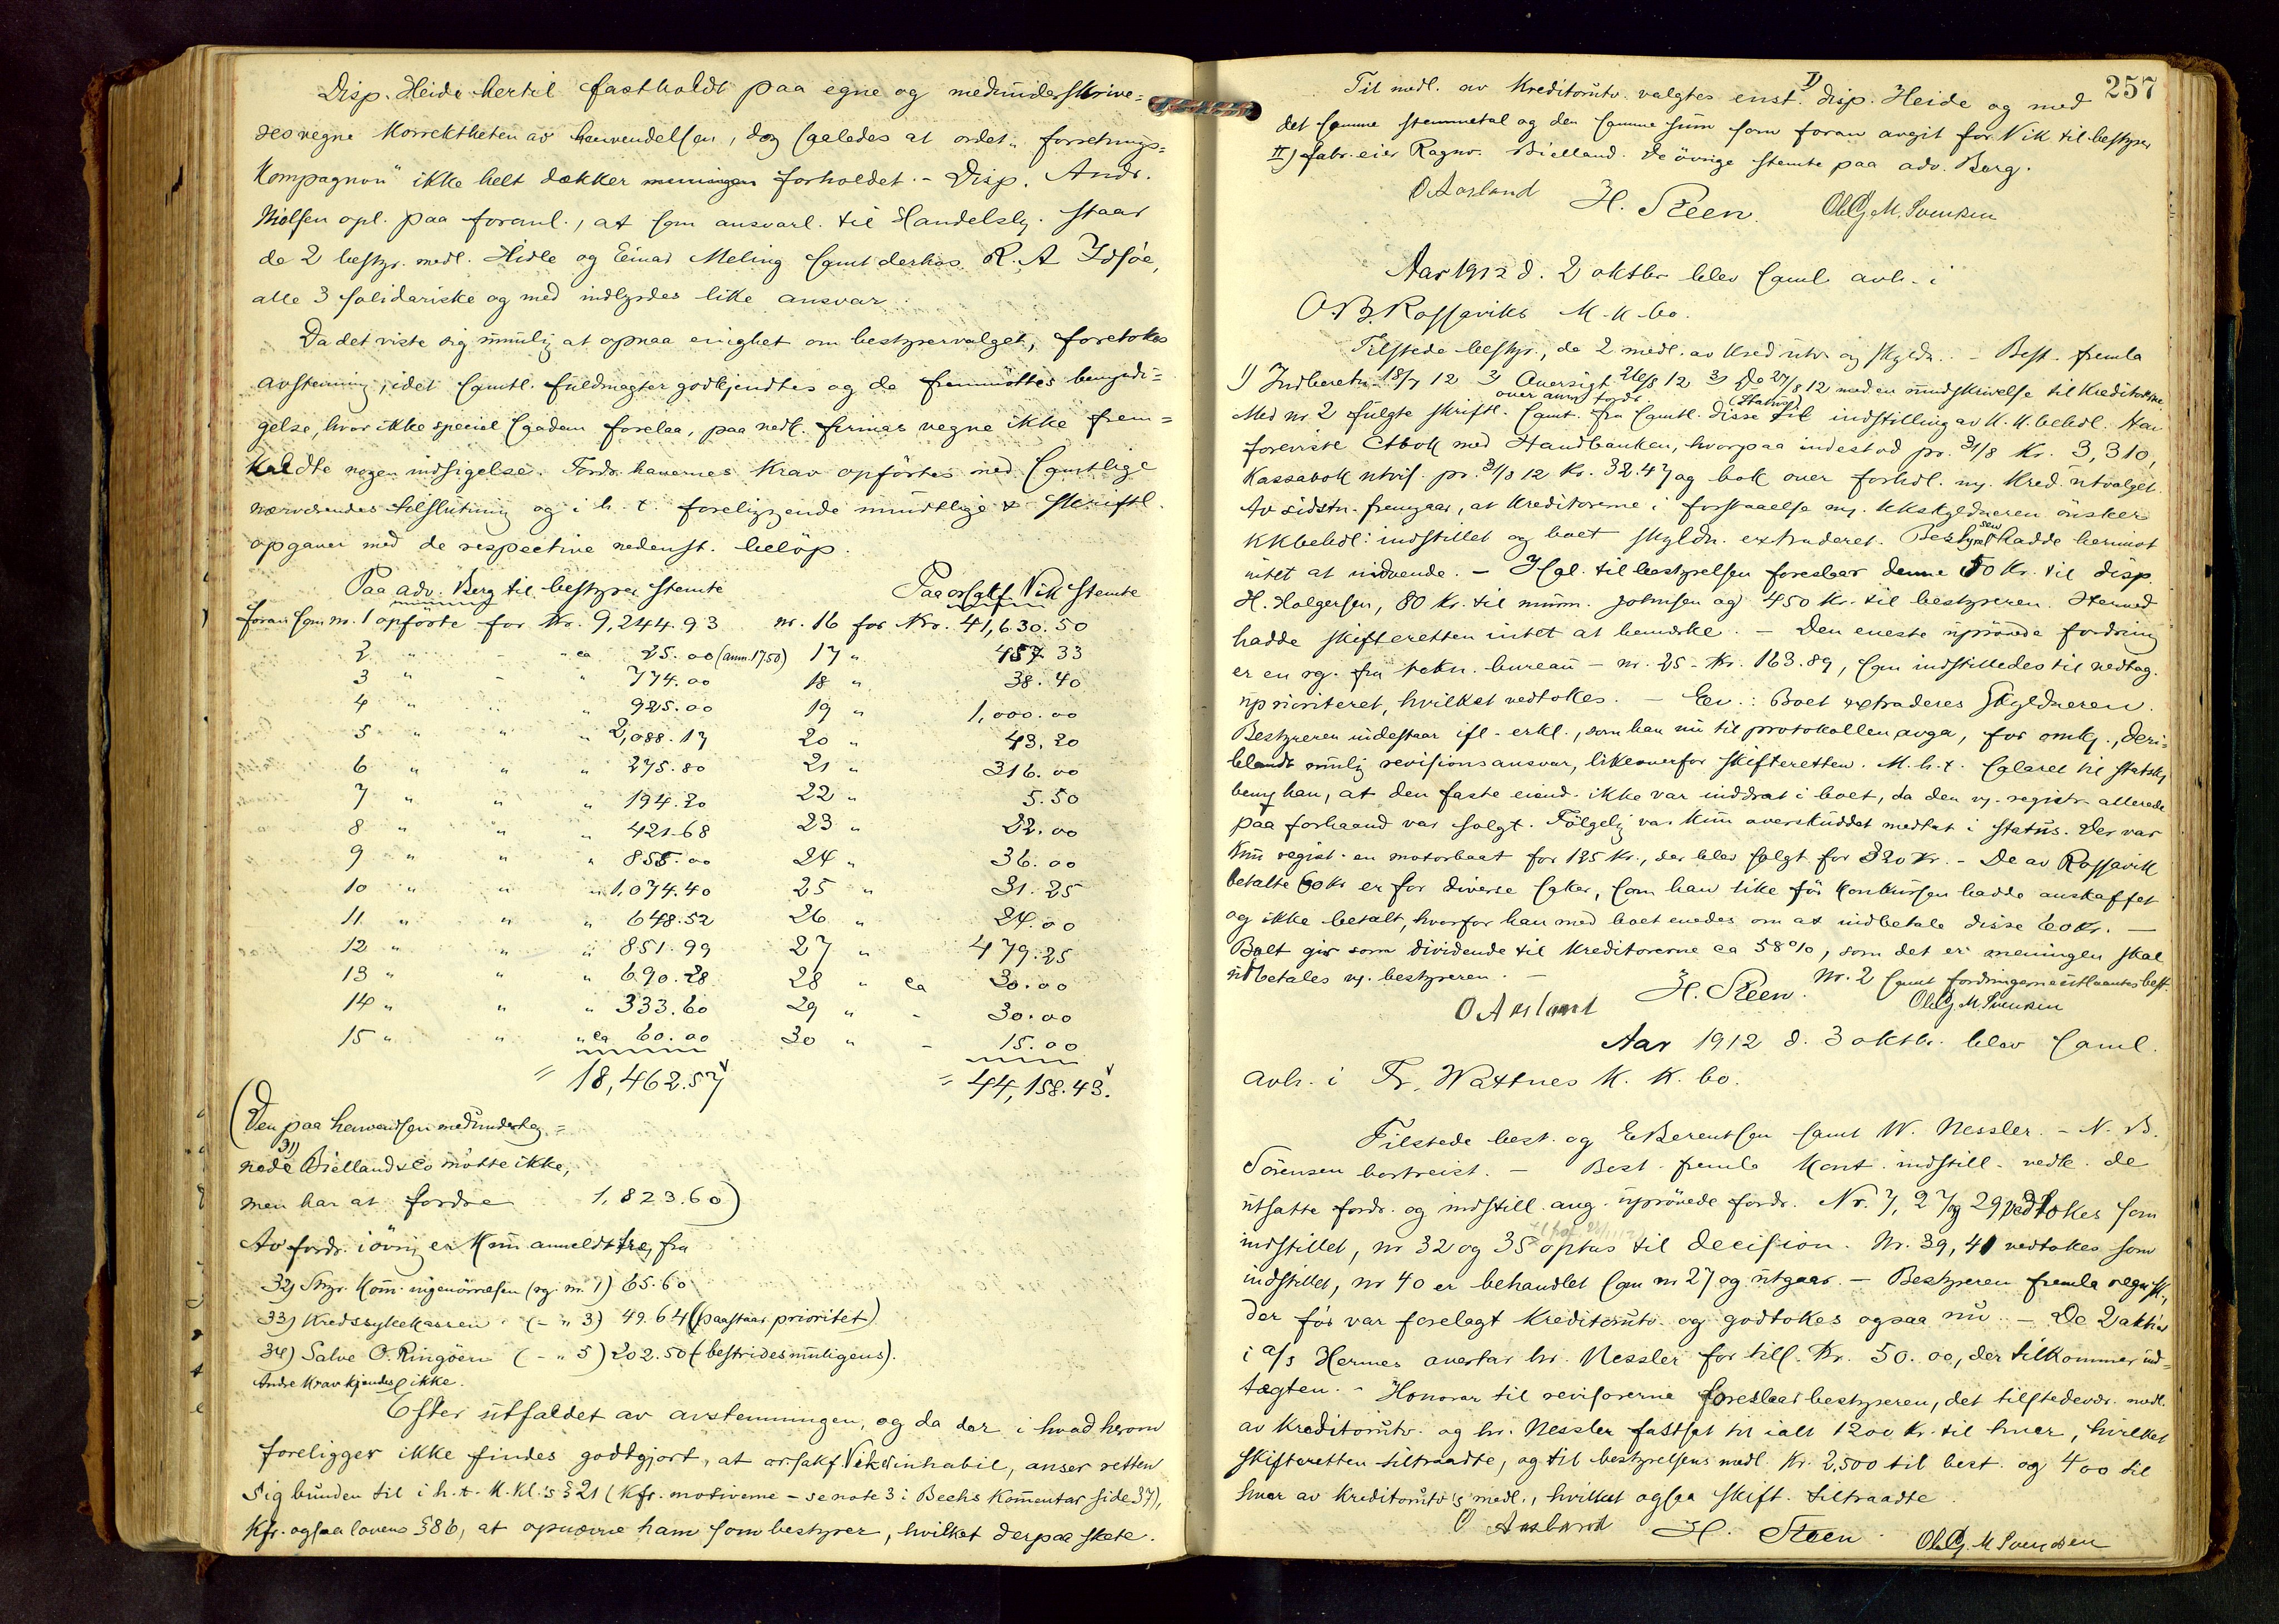 Disp. Heide hertil fastholdt paa egne og medunderskrive=
res vegne korrektheten av henvendelsen, dog saaledes at ordet "forretnings=
kompagnon" ikke helt dækker meningen forholdet. - Disp. Andr.
Nielsen opl. paa foranl., at som ansvarl. til Handelsly. staar
de 2 bestyr. medl. Hidle og Einar Meling samt derhos R. A Idsöe,
alle 3 solidariske og med indbyrdes like ansvar.
Da det viste sig umulig at opnaa enighet om bestyrervalget, foretokes
avstemning, idet samtl. fuldmagter godkjendtes og de fremmöttes bemyndi=
gelse, hvor ikke speciel saadan forelaa, paa nedl. firmas vegne ikke frem=
kaldte nogen indsigelse. Fordr.havernes krav opförtes med samtlige
nærværendes tilslutning og i h. t. foreliggende mundtlige & skriftl.
opgaver med de respective nedenst. belöp.
Paa adv. Berg til bestyrer stemte Paa orsakf. Vik stemte
foran som nr. 1 opförte for Kr. 9,244.93 nr. 16 for Kr. 41,630.50
2 " - " ca 25.00 (anm. 17,50) 17 " 457.33
3 " - " 774.00 18 " 38.40
4 " " " 925.00 19 " 1,000.00
5 " " " 2,088.17 20 " 43.20
6 " " " 275.80 21 " 316.00
7 " " " 194.20 22 " 5.50
8 " " " 421.68 23 " 22.00
9 " " " 855.00 24 " 36.00
10 " " " 1,074.40 25 " 31.25
11 " " " 648.52 26 " 24.00
12 " " " 851.99 27 " 479.25
13 " " " 690.28 28 " ca 30.00
14 " " " 333.60 29 " - 30.00
15 " " " ca 60.00 30 " - 15.00
= 18,462.57 = 44,158.43.
(Den paa henvendelsen medunderteg=
nede 31) Bielland & Co mötte ikke,
men har at fordre 1,823.60)
Av fordr. iövrig er kun anmeldt tre, fra
32) Stvgr. kom. ingeniörvæsen (rg. nr. 1) 65.60
33) Kredssykekassen (- " 3) 49.64 (paastaar prioritet)
34) Salve O. Ringöen (- " 5) 202.50 (bestrides muligens).
Andre krav kjendes ikke.
Efter utfaldet av avstemningen, og da der i hvad herom
foreligger ikke findes godtgjort, at orsakf. Vik er inhabil, anser retten
sig bunden til i h. t. K.kl.'s § 21 (Kfr. motiverne - se note 3 i Beehs kommentar side 37),
kfr. ogsaa lovens § 86, at opnævne ham som bestyrer, hvilket derpaa skete.
257
Til medl. av kreditorutv. valgtes enst. I) disp. Heide og med
det samme stemmetal og den samme sum som foran avgit for Vik til bestyrer
II) fabr.eier Ragnv. Bielland. De övrige stemte paa adv. Berg.
O Aasland H. Steen. Olaf M. Svendsen
Aar 1912 d. 2 oktbr blev saml. avh. i
O. B. Rossaviks K. K. bo.
Tilstede bestyr., de 2 medl. av kred.utv. og skyldn. - Best. fremla
1) Indberetn. 18/7 12 2) Oversigt over anm. fordr. 26/8 12 3) Do 27/8 12 (Status) med en rundskrivelse til kreditorerne.
Med nr. 2 fulgte skriftl. samt. fra samtl. disse til indstilling av K. K. behdl. Han
foreviste Ctbok med Handbanken, hvorpaa indestod pr. 31/8 Kr. 3,310,
Kassabok utvis. pr. 31/8 12 Kr. 32.47 og bok over forhdl. vg. kred.utvalget.
Av sidstn. fremgaar, at kreditorerne i forstaaelse m. kkskyldneren önsker
KKbehdl. indstillet og boet skyldn. extraderet. Bestyrelsen hadde herimot
intet at indvende. - Hgl. til bestyrelsen foreslaar denne 50 Kr. til disp.
H. Holgersen, 80 Kr. til murm. Johnsen og 450 Kr. til bestyreren. Hermed
hadde skifteretten intet at bemerke. - Den eneste uprövede fordring
er en rg. fra tekn. bureau - nr. 25 - Kr. 163.89, som indstilledes til vedtag.
uprioriteret, hvilket vedtokes. - Ev.: Boet extraderes skyldneren.
Bestyreren indestaar ifl. erkl., som han nu til protokollen avga, for omk., deri=
blandt mulig revisionsansvar, likeoverfor skifteretten. M. h. t. salaret til statsk.
bem. han, at den faste eiend. ikke var inddrat i boet, da den vg. registr. allerede
paa forhaand var solgt. Fölgelig var kun overskuddet medtat i status. Der var
kun regist. en motorbaat for 125 Kr., der blev solgt for 320 Kr. - De av Rossavik
betalte 60 Kr er for diverse saker, som han like för konkursen hadde anskaffet
og ikke betalt, hvorfor han med boet enedes om at indbetale disse 60 Kr. -
Boet gir som dividende til kreditorerne ca 58%, som det er meningen skal
utbetales vg. bestyreren. - Nr. 2 samt fordringerne utlaantes best.
O Aasland H. Steen. Olaf M. Svendsen
Aar 1912 d. 3 oktbr. blev saml.
avh. i Fr. Wattnes K. K. bo.
Tilstede best. og E Berentsen samt W. Nessler. - N. B.
Sörensen bortreist. - Best. fremla kont. indstill. vedk. de
utsatte fordr. og indstill. ang. uprövede fordr. Nr. 7, 27 og 29 vedtokes som
indstillet, nr 32 og 35 optas til decision. Nr. 39, 41 vedtokes som
indstillet, nr 40 er behandlet som nr 27 og utgaar. - Bestyreren fremla regnsk.,
der för var forelagt kreditorutv. og godtokes ogsaa nu. - De 2 aktier
i a/s Hermes overtar hr. Nessler for tils. Kr. 50.00, der tilkommer ind=
tægten. - Honorar til revisorerne foreslaar bestyreren, det tilstedevær. medl.
av kreditorutv. og hr. Nessler fastsat til ialt 1200 Kr. til hver, hvilket
skifteretten tiltraadte, og til bestyrelsens medl. Kr. 2,500 til best. og 400 til
hver av kreditorutv's medl., hvilket ogsaa skift. tiltraadte.
O Aasland H. Steen. Olaf M Svendsen